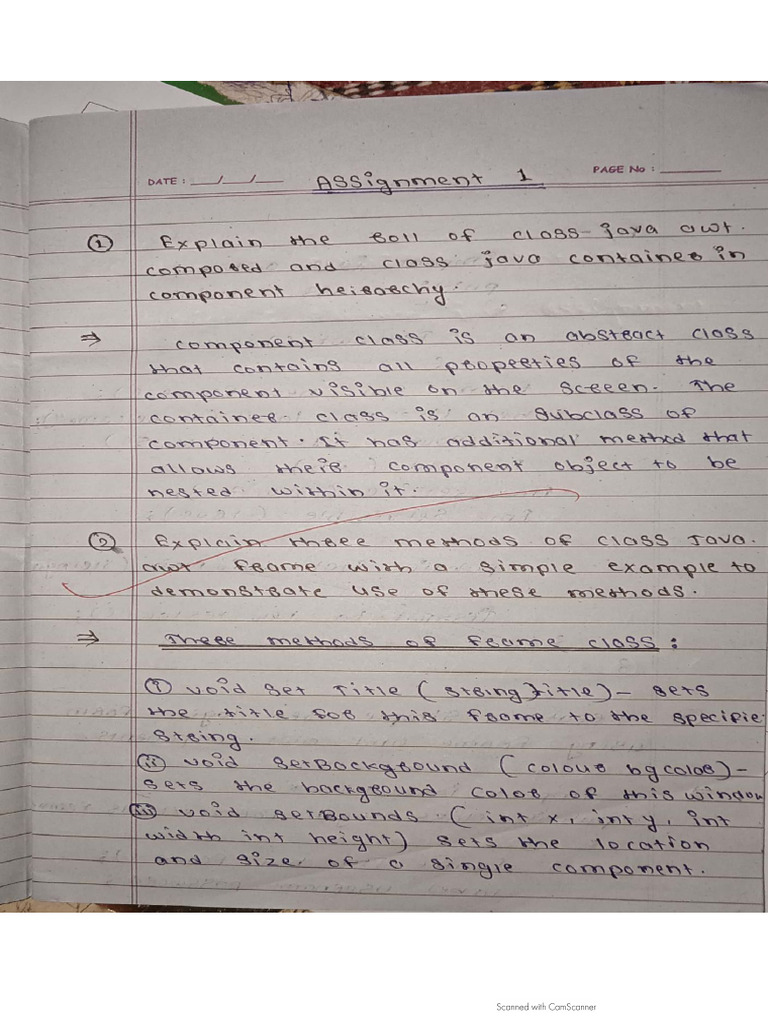 DATE : __/__/__
Assignment 1
PAGE No : ______
① Explain the roll of class java awt.
composed and class java container in
component heirarchy.
⇒ component class is an abstract class
that contains all properties of the
component visible on the screen. The
container class is an subclass of
component. It has additional method that
allows their component object to be
nested within it.
② Explain three methods of class Java.
awt frame with a simple example to
demonstrate use of these methods.
⇒ Three methods of frame class :
(i) void set Title ( string title) - sets
the title for this frame to the specifie
string.
(ii) void setBackground ( colour bgcolor) -
sets the background color of this window
(iii) void setBounds ( int x, int y, int
width int height) sets the location
and size of a single component.
Scanned with CamScanner